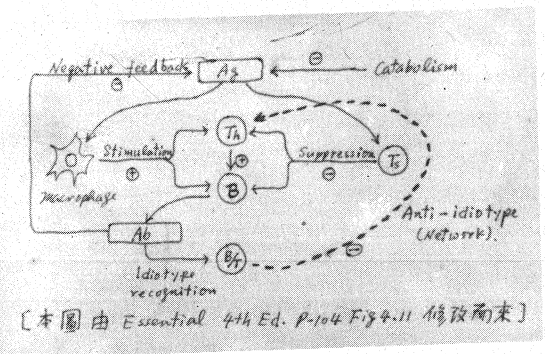 Negative feedback
⊖
Ag
⊖
Catabolism
Th
Stimulation
⊕
⊕
Suppression
⊖
Ts
macrophage
B
Anti-idiotype
(Network).
Ab
Idiotype
recognition
B/T
⊖
[本圖由 Essential 4th Ed. P.104 Fig 4.11 修改而來]